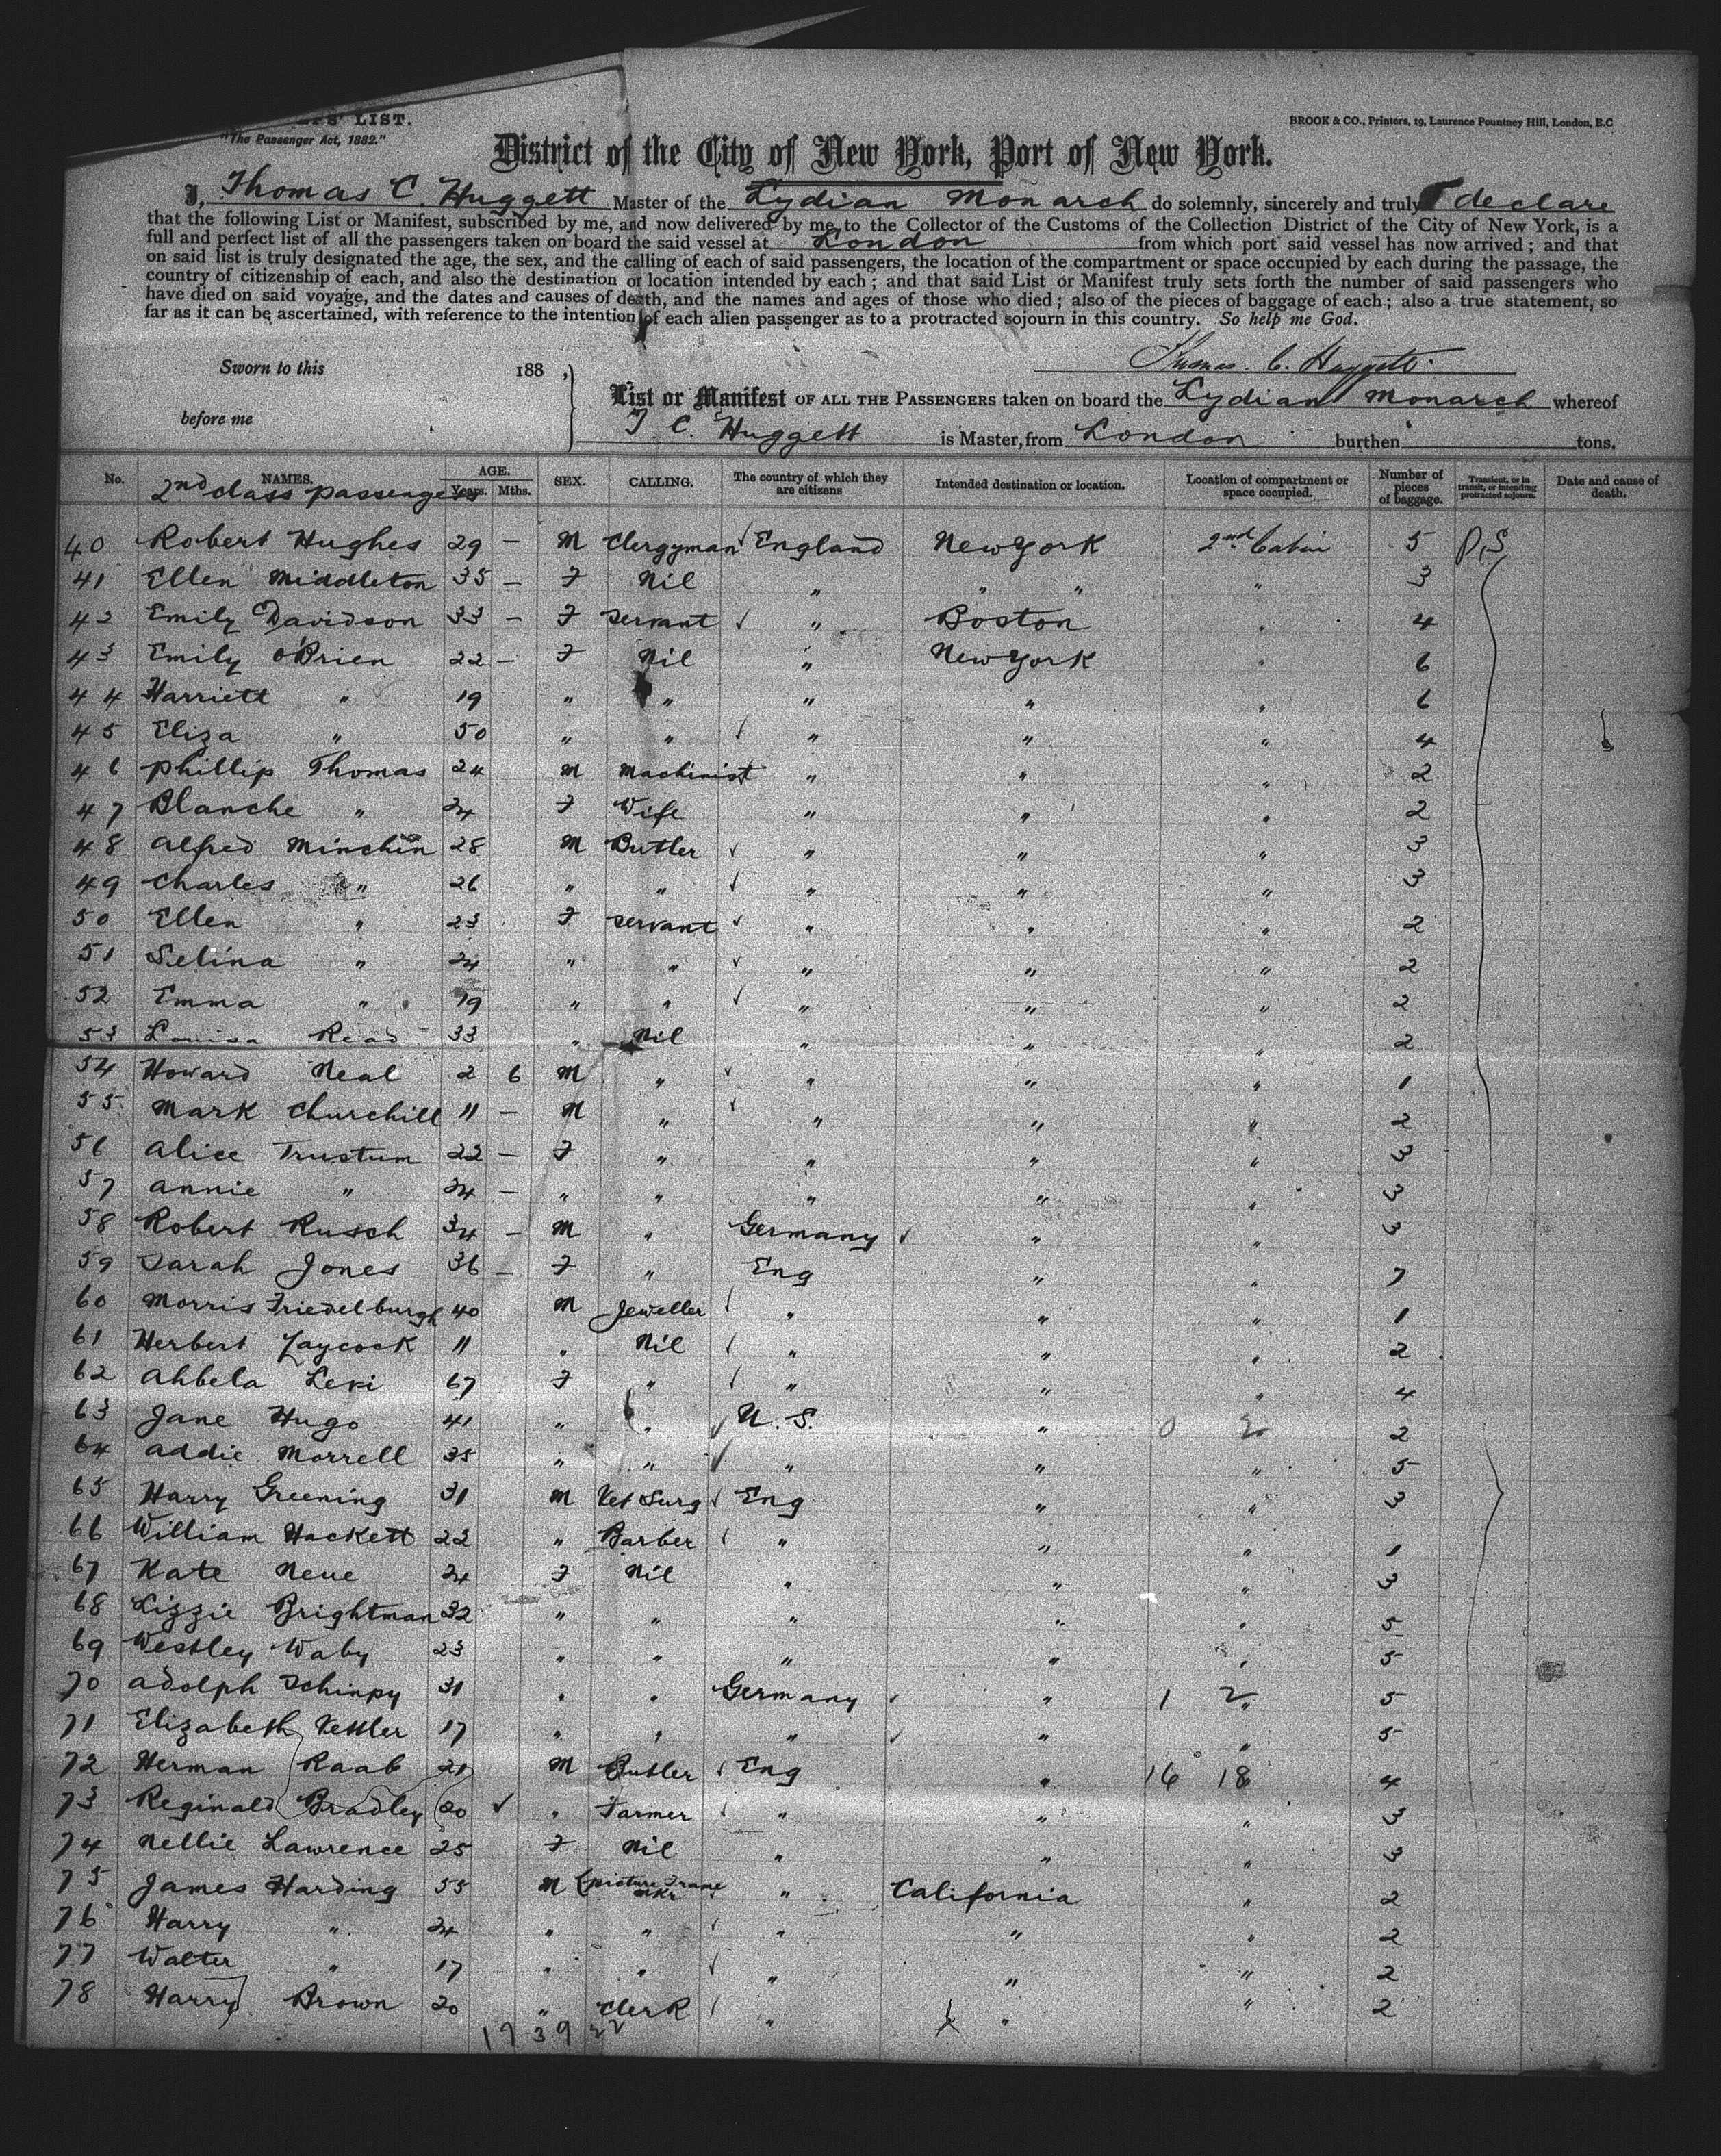 RS' LIST.
"The Passenger Act, 1882."
BROOK & CO., Printers, 19, Laurence Pountney Hill, London, E.C
District of the City of New York, Port of New York.
I, Thomas C. Huggett Master of the Lydian Monarch do solemnly, sincerely and truly declare
that the following List or Manifest, subscribed by me, and now delivered by me, to the Collector of the Customs of the Collection District of the City of New York, is a
full and perfect list of all the passengers taken on board the said vessel at London from which port said vessel has now arrived; and that
on said list is truly designated the age, the sex, and the calling of each of said passengers, the location of the compartment or space occupied by each during the passage, the
country of citizenship of each, and also the destination or location intended by each; and that said List or Manifest truly sets forth the number of said passengers who
have died on said voyage, and the dates and causes of death, and the names and ages of those who died; also of the pieces of baggage of each; also a true statement, so
far as it can be ascertained, with reference to the intention of each alien passenger as to a protracted sojourn in this country. So help me God.
Thomas. C. Huggett.
Sworn to this 188 ,
before me
List or Manifest OF ALL THE PASSENGERS taken on board the Lydian Monarch whereof
T. C. Huggett is Master, from London burthen tons.
No. NAMES. AGE. Years. Mths. SEX. CALLING. The country of which they are citizens Intended destination or location. Location of compartment or space occupied. Number of pieces of baggage. Transient, or in transit, or intending protracted sojourn. Date and cause of death.
2nd class passengers
40 Robert Hughes 29 - M Clergyman England New York 2nd Cabin 5 P,S
41 Ellen Middleton 35 - F Nil " " " " 3
42 Emily Davidson 33 - F Servant " Boston " 4
43 Emily O'Brien 22 - F Nil " New York " 6
44 Harriett " 19 " " " " " 6
45 Eliza " 50 " " " " " 4
46 Phillip Thomas 24 M Machinist " " " 2
47 Blanche " 24 F Wife " " " 2
48 Alfred Minchin 28 M Butler " " " 3
49 Charles " 26 " " " " " 3
50 Ellen " 23 F Servant " " " 2
51 Selina " 24 " " " " " 2
52 Emma " 19 " " " " " 2
53 Louisa Read 33 " Nil " " " 2
54 Howard Neal 2 6 M " " " " 1
55 Mark Churchill 11 - M " " " " 2
56 Alice Trustum 22 - F " " " " 3
57 Annie " 24 - " " " " " 3
58 Robert Rusch 34 - M " Germany " " 3
59 Sarah Jones 36 - F " Eng " " 7
60 Morris Friedelburgh 40 M Jeweller " " " 1
61 Herbert Laycock 11 " Nil " " " 2
62 Ahbela Levi 67 F " " " " 4
63 Jane Hugo 41 " " U.S. " 0 2 2
64 Addie Morrell 35 " " " " " 5
65 Harry Greening 31 M Vet Surg Eng " " 3
66 William Hackett 22 " Barber " " " 1
67 Kate Neve 24 F Nil " " " 3
68 Lizzie Brightman 32 " " " " " 5
69 Westley Waby 23 " " " " " 5
70 Adolph Schinpy 31 " " Germany " 1 2 " 5
71 Elizabeth Vettler 17 " " " " " 5
72 Herman Raab 21 M Butler Eng " 16 18 4
73 Reginald Bradley 20 " Farmer " " " 3
74 Nellie Lawrence 25 F Nil " " " 3
75 James Harding 55 M picture Frame mkr " California " 2
76 Harry " 24 " " " " " 2
77 Walter " 17 " " " " " 2
78 Harry Brown 20 " Clerk " " " 2
17 39 22